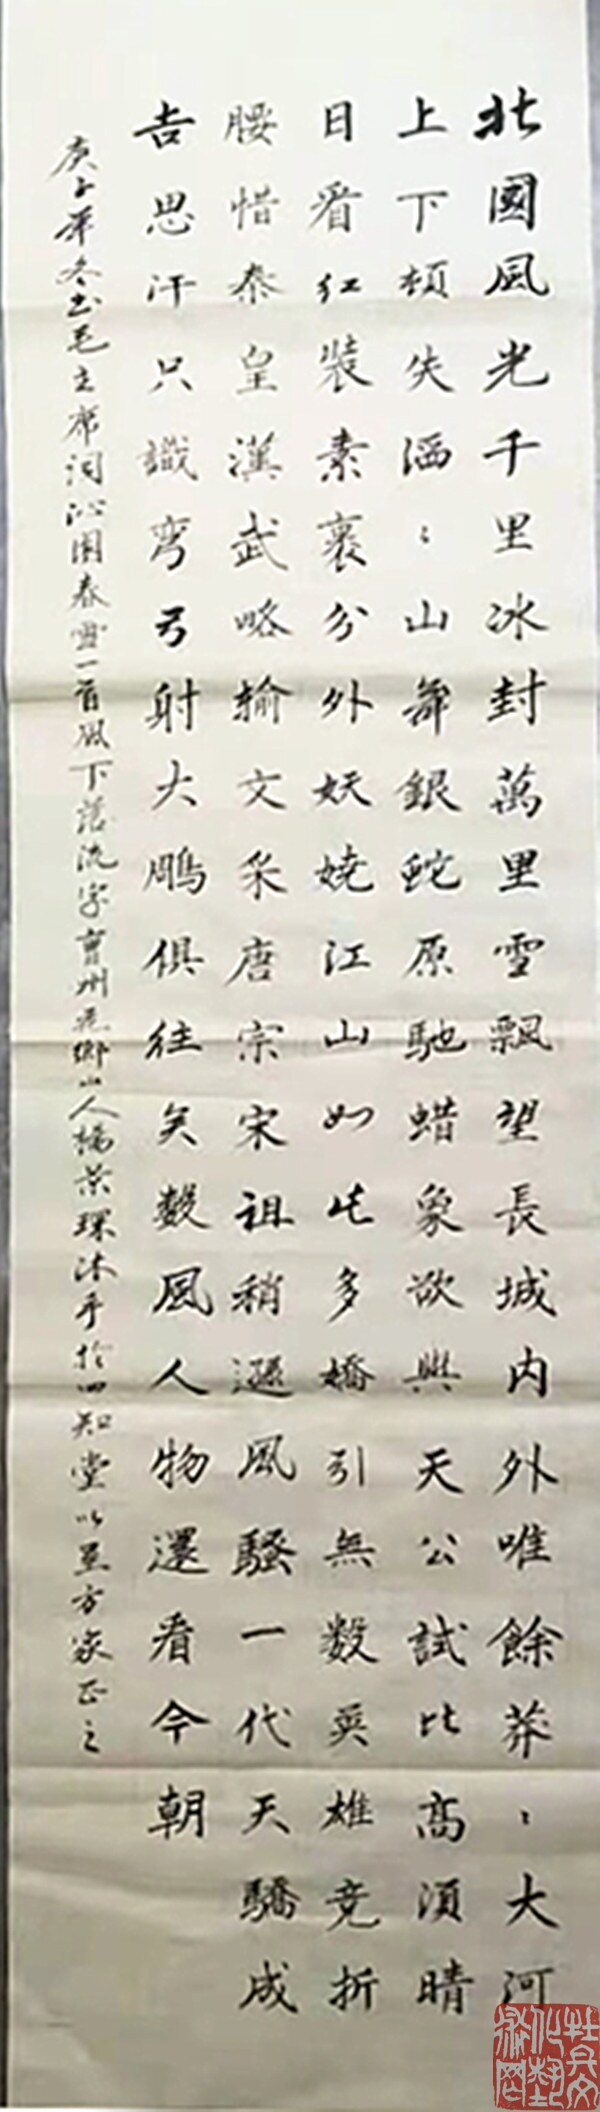 北國風光千里冰封萬里雪飄望長城内外唯餘莽﹕大河
上下頓失滔﹕山舞銀蛇原馳蜡象欲與天公試比高須晴
日看紅裝素裹分外妖嬈江山如此多嬌引無數英雄竞折
腰惜秦皇漢武略輸文采唐宗宋祖稍遜風騷一代天驕成
吉思汗只識彎弓射大鵰俱往矣數風人物還看今朝
庚子年冬書毛主席词沁園春雪一首風下落流字曹州花鄉山人楊景璞沐手於四知堂以呈方家正之
牡丹文化藝術网